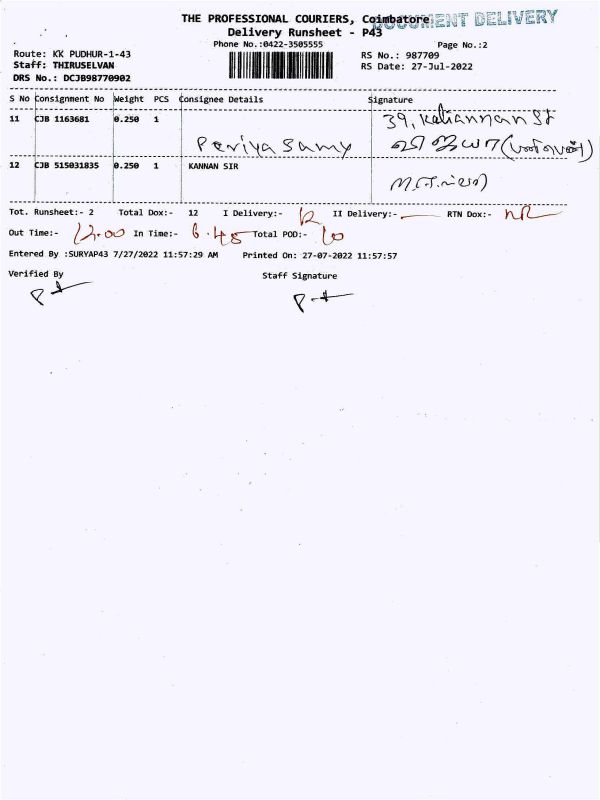 THE PROFESSIONAL COURIERS, Coimbatore
DOCUMENT DELIVERY
Delivery Runsheet - P43
Phone No.:0422-3505555
Page No.:2
Route: KK PUDHUR-1-43
RS No.: 987709
Staff: THIRUSELVAN
RS Date: 27-Jul-2022
DRS No.: DCJB98770902
S No Consignment No Weight PCS Consignee Details Signature
11 CJB 1163681 0.250 1 39, Kaliannan St
Periya Samy
12 CJB 515031835 0.250 1 KANNAN SIR
Tot. Runsheet:- 2 Total Dox:- 12 I Delivery:- 12 II Delivery:- — RTN Dox:- NR
Out Time:- 12.00 In Time:- 6.45 Total POD:- 10
Entered By :SURYAP43 7/27/2022 11:57:29 AM Printed On: 27-07-2022 11:57:57
Verified By Staff Signature